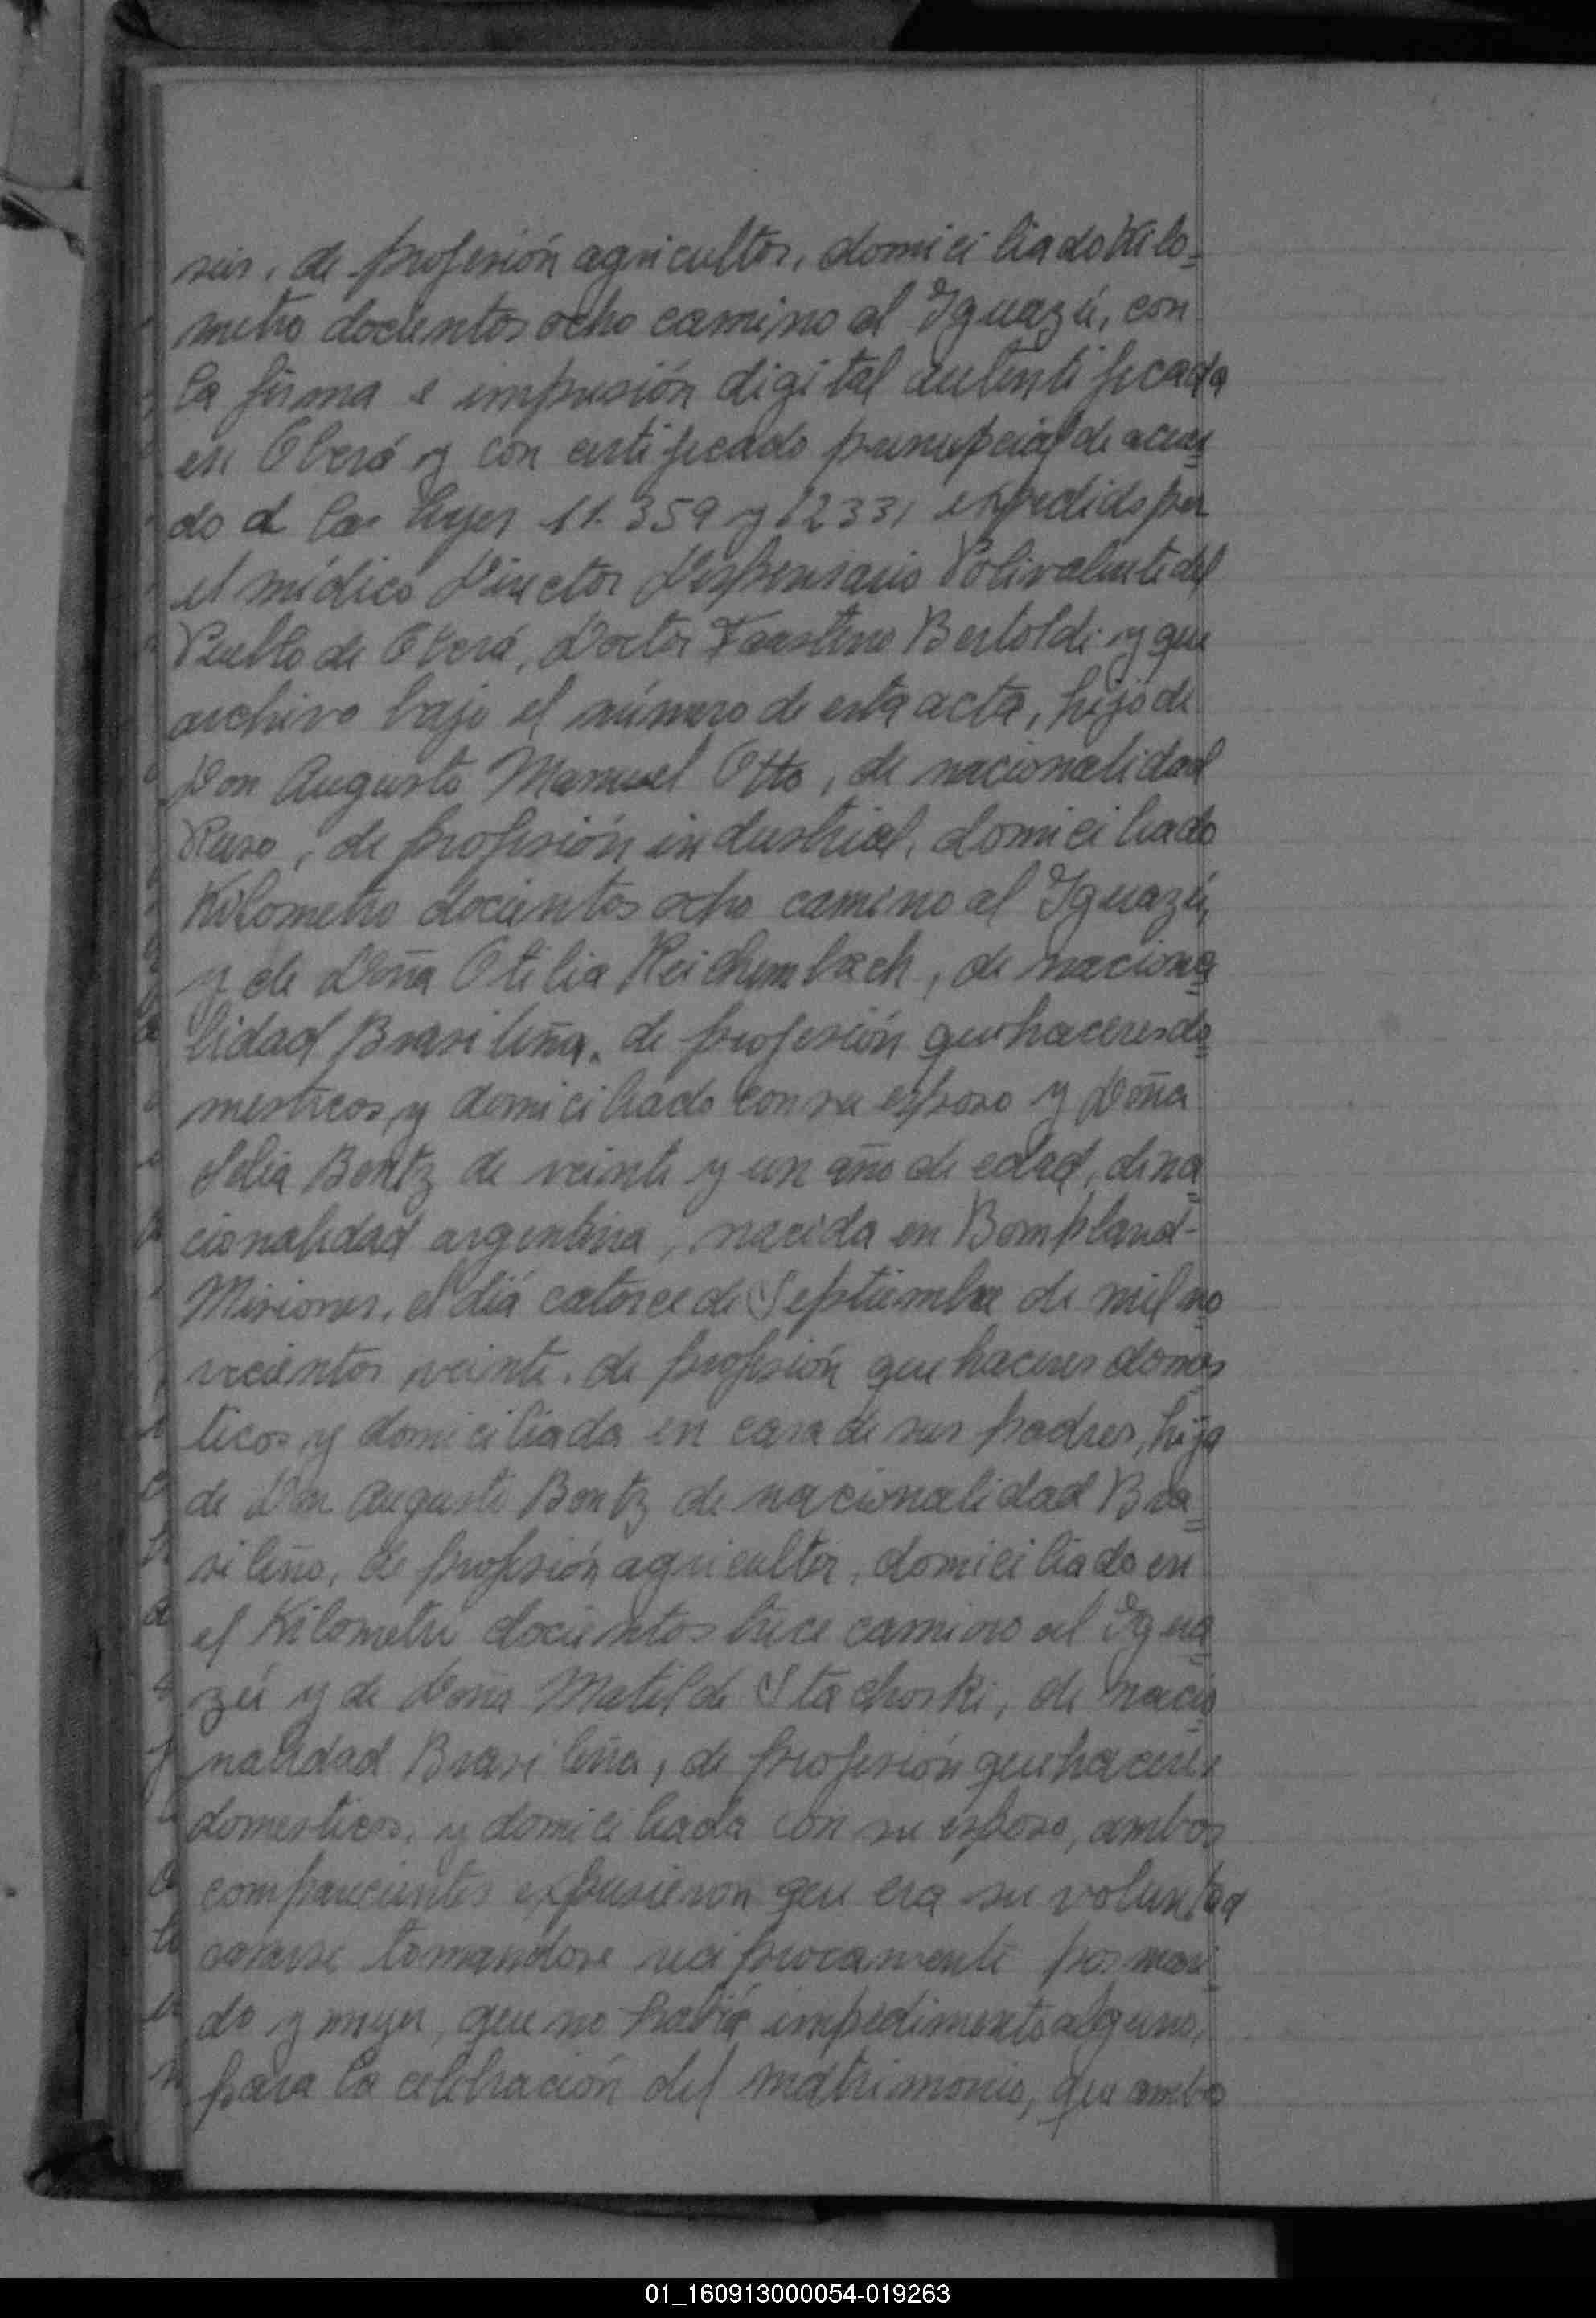 seis, de profesión agricultor, domiciliado Kilo=
metro docientos ocho camino al Iguazú, con
la firma e impresión digital autentificada
en Oberá y con certificado prenupcial de acuer=
do a las leyes 11.359 y 12331 expedido por
el médico Director Dispensario Polivalente del
Pueblo de Oberá, Doctor Faustino Bertoldi y que
archivo bajo el número de esta acta, hijo de
Don Augusto Manuel Otto, de nacionalidad
Ruso, de profesión industrial, domiciliado
Kilometro docientos ocho camino al Iguazú,
y de Doña Otilia Reichembach, de naciona=
lidad Brasileña, de profesión quehaceres do=
mesticos, y domiciliado con su esposo y Doña
Bentz de veinte y un año de edad, de na=
cionalidad argentina, nacida en Bompland-
Misiones, el día catorce de Septiembre de mil no=
vecientos veinte, de profesión quehaceres domes
ticos, y domiciliada en casa de sus padres, hija
de Don Augusto Bentz de nacionalidad Bra=
sileño, de profesión agricultor, domiciliado en
el Kilometro docientos trece camino al Igua=
zú y de Doña Matilde Stachoski, de nacio=
nalidad Brasileña, de profesión quehaceres
domesticos, y domiciliada con su esposo, ambos
comparecientes expusieron que era su voluntad
casarse tomandose reciprocamente por mari=
do y mujer, que no había impedimento alguno,
para la celebración del matrimonio, que ambos
01_160913000054-019263